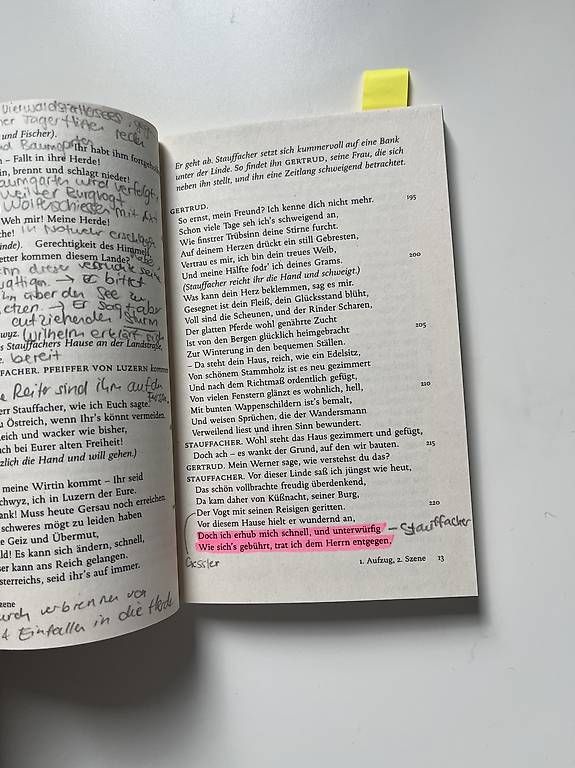 Vierwaldstättersees
und Fischer).
Ihr habt ihm fortgeholfen
– Fallt in ihre Herde!
in, brennt und schlagt nieder!
Baumgarten wird verfolgt,
weil er Burgvogt
Wolfenschiessen mit Axt
Weh mir! Meine Herde!
in Notwehr erschlagen
Gerechtigkeit des Himmels
etter kommen diesem Lande?
→ EC bittet
ihn über den See zu
aufziehender Sturm
Wilhelm erklärt sich
bereit
s Stauffachers Hause an der Landstraße,
FACHER. PFEIFFER VON LUZERN kommen
Reiter sind ihm auf den
err Stauffacher, wie ich Euch sagte.
u Östreich, wenn Ihr's könnt vermeiden.
eich und wacker wie bisher,
bei Eurer alten Freiheit!
zlich die Hand und will gehen.)
meine Wirtin kommt – Ihr seid
chwyz, ich in Luzern der Eure.
ank! Muss heute Gersau noch erreichen
schweres mögt zu leiden haben
e Geiz und Übermut,
ld! Es kann sich ändern, schnell,
ser kann ans Reich gelangen.
sterreichs, seid ihr's auf immer.
zene
durch verbrennen von
& Einfallen in die Herde
Er geht ab. Stauffacher setzt sich kummervoll auf eine Bank
unter der Linde. So findet ihn GERTRUD, seine Frau, die sich
neben ihn stellt, und ihn eine Zeitlang schweigend betrachtet.
GERTRUD.
So ernst, mein Freund? Ich kenne dich nicht mehr. 195
Schon viele Tage seh ich's schweigend an,
Wie finstrer Trübsinn deine Stirne furcht.
Auf deinem Herzen drückt ein still Gebresten,
Vertrau es mir, ich bin dein treues Weib,
Und meine Hälfte fodr' ich deines Grams. 200
(Stauffacher reicht ihr die Hand und schweigt.)
Was kann dein Herz beklemmen, sag es mir.
Gesegnet ist dein Fleiß, dein Glücksstand blüht,
Voll sind die Scheunen, und der Rinder Scharen,
Der glatten Pferde wohl genährte Zucht
Ist von den Bergen glücklich heimgebracht 205
Zur Winterung in den bequemen Ställen.
– Da steht dein Haus, reich, wie ein Edelsitz,
Von schönem Stammholz ist es neu gezimmert
Und nach dem Richtmaß ordentlich gefügt,
Von vielen Fenstern glänzt es wohnlich, hell, 210
Mit bunten Wappenschildern ist's bemalt,
Und weisen Sprüchen, die der Wandersmann
Verweilend liest und ihren Sinn bewundert.
STAUFFACHER. Wohl steht das Haus gezimmert und gefügt,
Doch ach – es wankt der Grund, auf den wir bauten. 215
GERTRUD. Mein Werner sage, wie verstehst du das?
STAUFFACHER. Vor dieser Linde saß ich jüngst wie heut,
Das schön vollbrachte freudig überdenkend,
Da kam daher von Küßnacht, seiner Burg,
Der Vogt mit seinen Reisigen geritten. 220
Vor diesem Hause hielt er wundernd an,
Doch ich erhub mich schnell, und unterwürfig – Stauffacher
Wie sich's gebührt, trat ich dem Herrn entgegen,
Gessler
1. Aufzug, 2. Szene 13